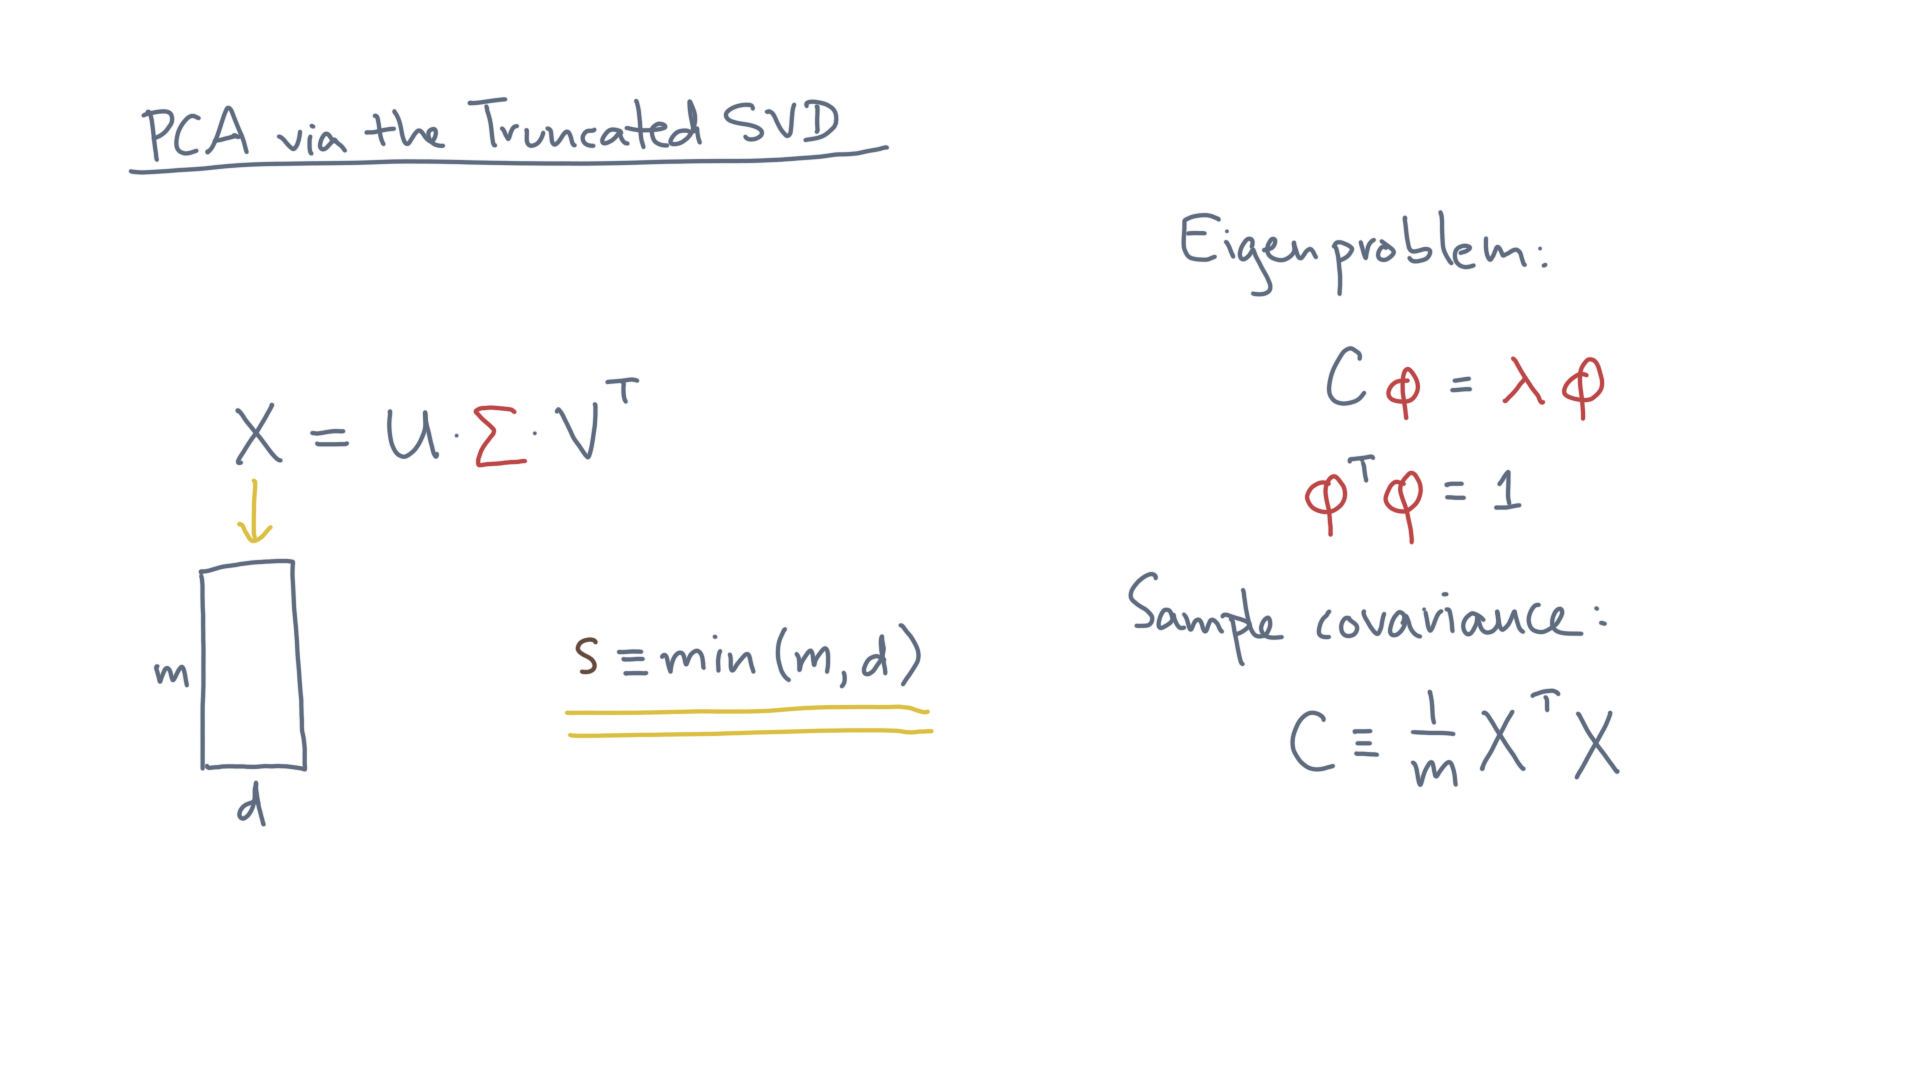 PCA via the Truncated SVD
X = U · Σ · V^T
m
d
s ≡ min (m, d)
Eigenproblem:
C φ = λ φ
φ^T φ = 1
Sample covariance:
C ≡ 1/m X^T X